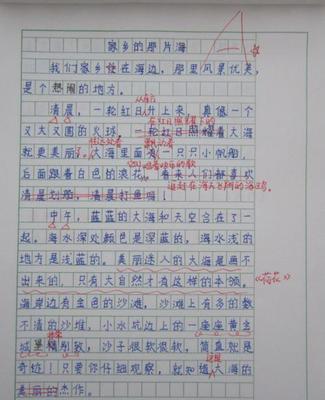 家乡的那片海
我们家乡便在海边，那里风景优美，
是个热闹的地方。
清晨，一轮红日升上来，真像一个
又大又圆的火球。一轮红日照耀着大海
就更美丽了。大海里面有一只只小帆船，
后面跟着白色的浪花。看来人们都喜欢
清晨划船，清晨打鱼啊！
中午，蓝蓝的大海和天空合在了一
起。海水深处颜色是深蓝的，海水浅的
地方是浅蓝的。美丽迷人的大海是画不
出来的，只有大自然才有这样的本领。
《荷花》
海岸边有金色的沙滩，沙滩上有多的数
不清的沙堆，小水坑边上的一座座黄金
城堡精别致，沙子很软很软，简直就是
奇迹！只要你仔细观察，就知道大海的
美丽的杰作。